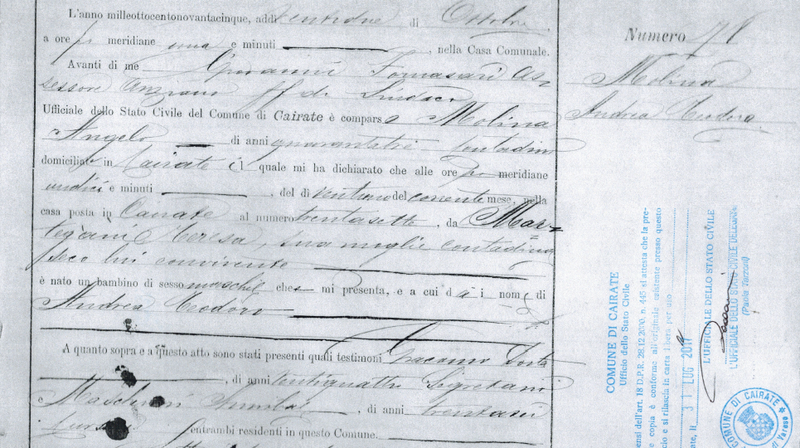 L'anno milleottocentonovantacinque, addì ventidue di Ottobre
a ore po meridiane una e minuti , nella Casa Comunale.
Avanti di me Giovanni Tomasari As=
sessore Anziano ff di Sindaco
Ufficiale dello Stato Civile del Comune di Cairate è comparso Molina
Angelo di anni quarantatre contadino
domiciliato in Cairate il quale mi ha dichiarato che alle ore po meridiane
undici e minuti , del dì ventuno del corrente mese, nella
casa posta in Cairate al numero trentasette, da Mar=
tegani Teresa, sua moglie contadina
seco lui convivente
è nato un bambino di sesso maschile che mi presenta, e a cui dà i nomi di
Andrea Teodoro
A quanto sopra e a questo atto sono stati presenti quali testimoni Giacomo
, di anni ventiquattro
e , di anni
entrambi residenti in questo Comune.
Numero 78
Molina
Andrea Teodoro
COMUNE DI CAIRATE
Ufficio dello Stato Civile
ensi dell'art. 18 D.P.R. 28.12.2000, n. 445 si attesta che la pre-
e copia è conforme all'originale esistente presso questo
cio e si rilascia in carta libera per uso
ate, lì 31 LUG 2017
L'UFFICIALE DELLO STATO CIVILE
L'UFFICIALE DELLO STATO CIVILE DELEGATO
COMUNE DI CAIRATE
di Varese